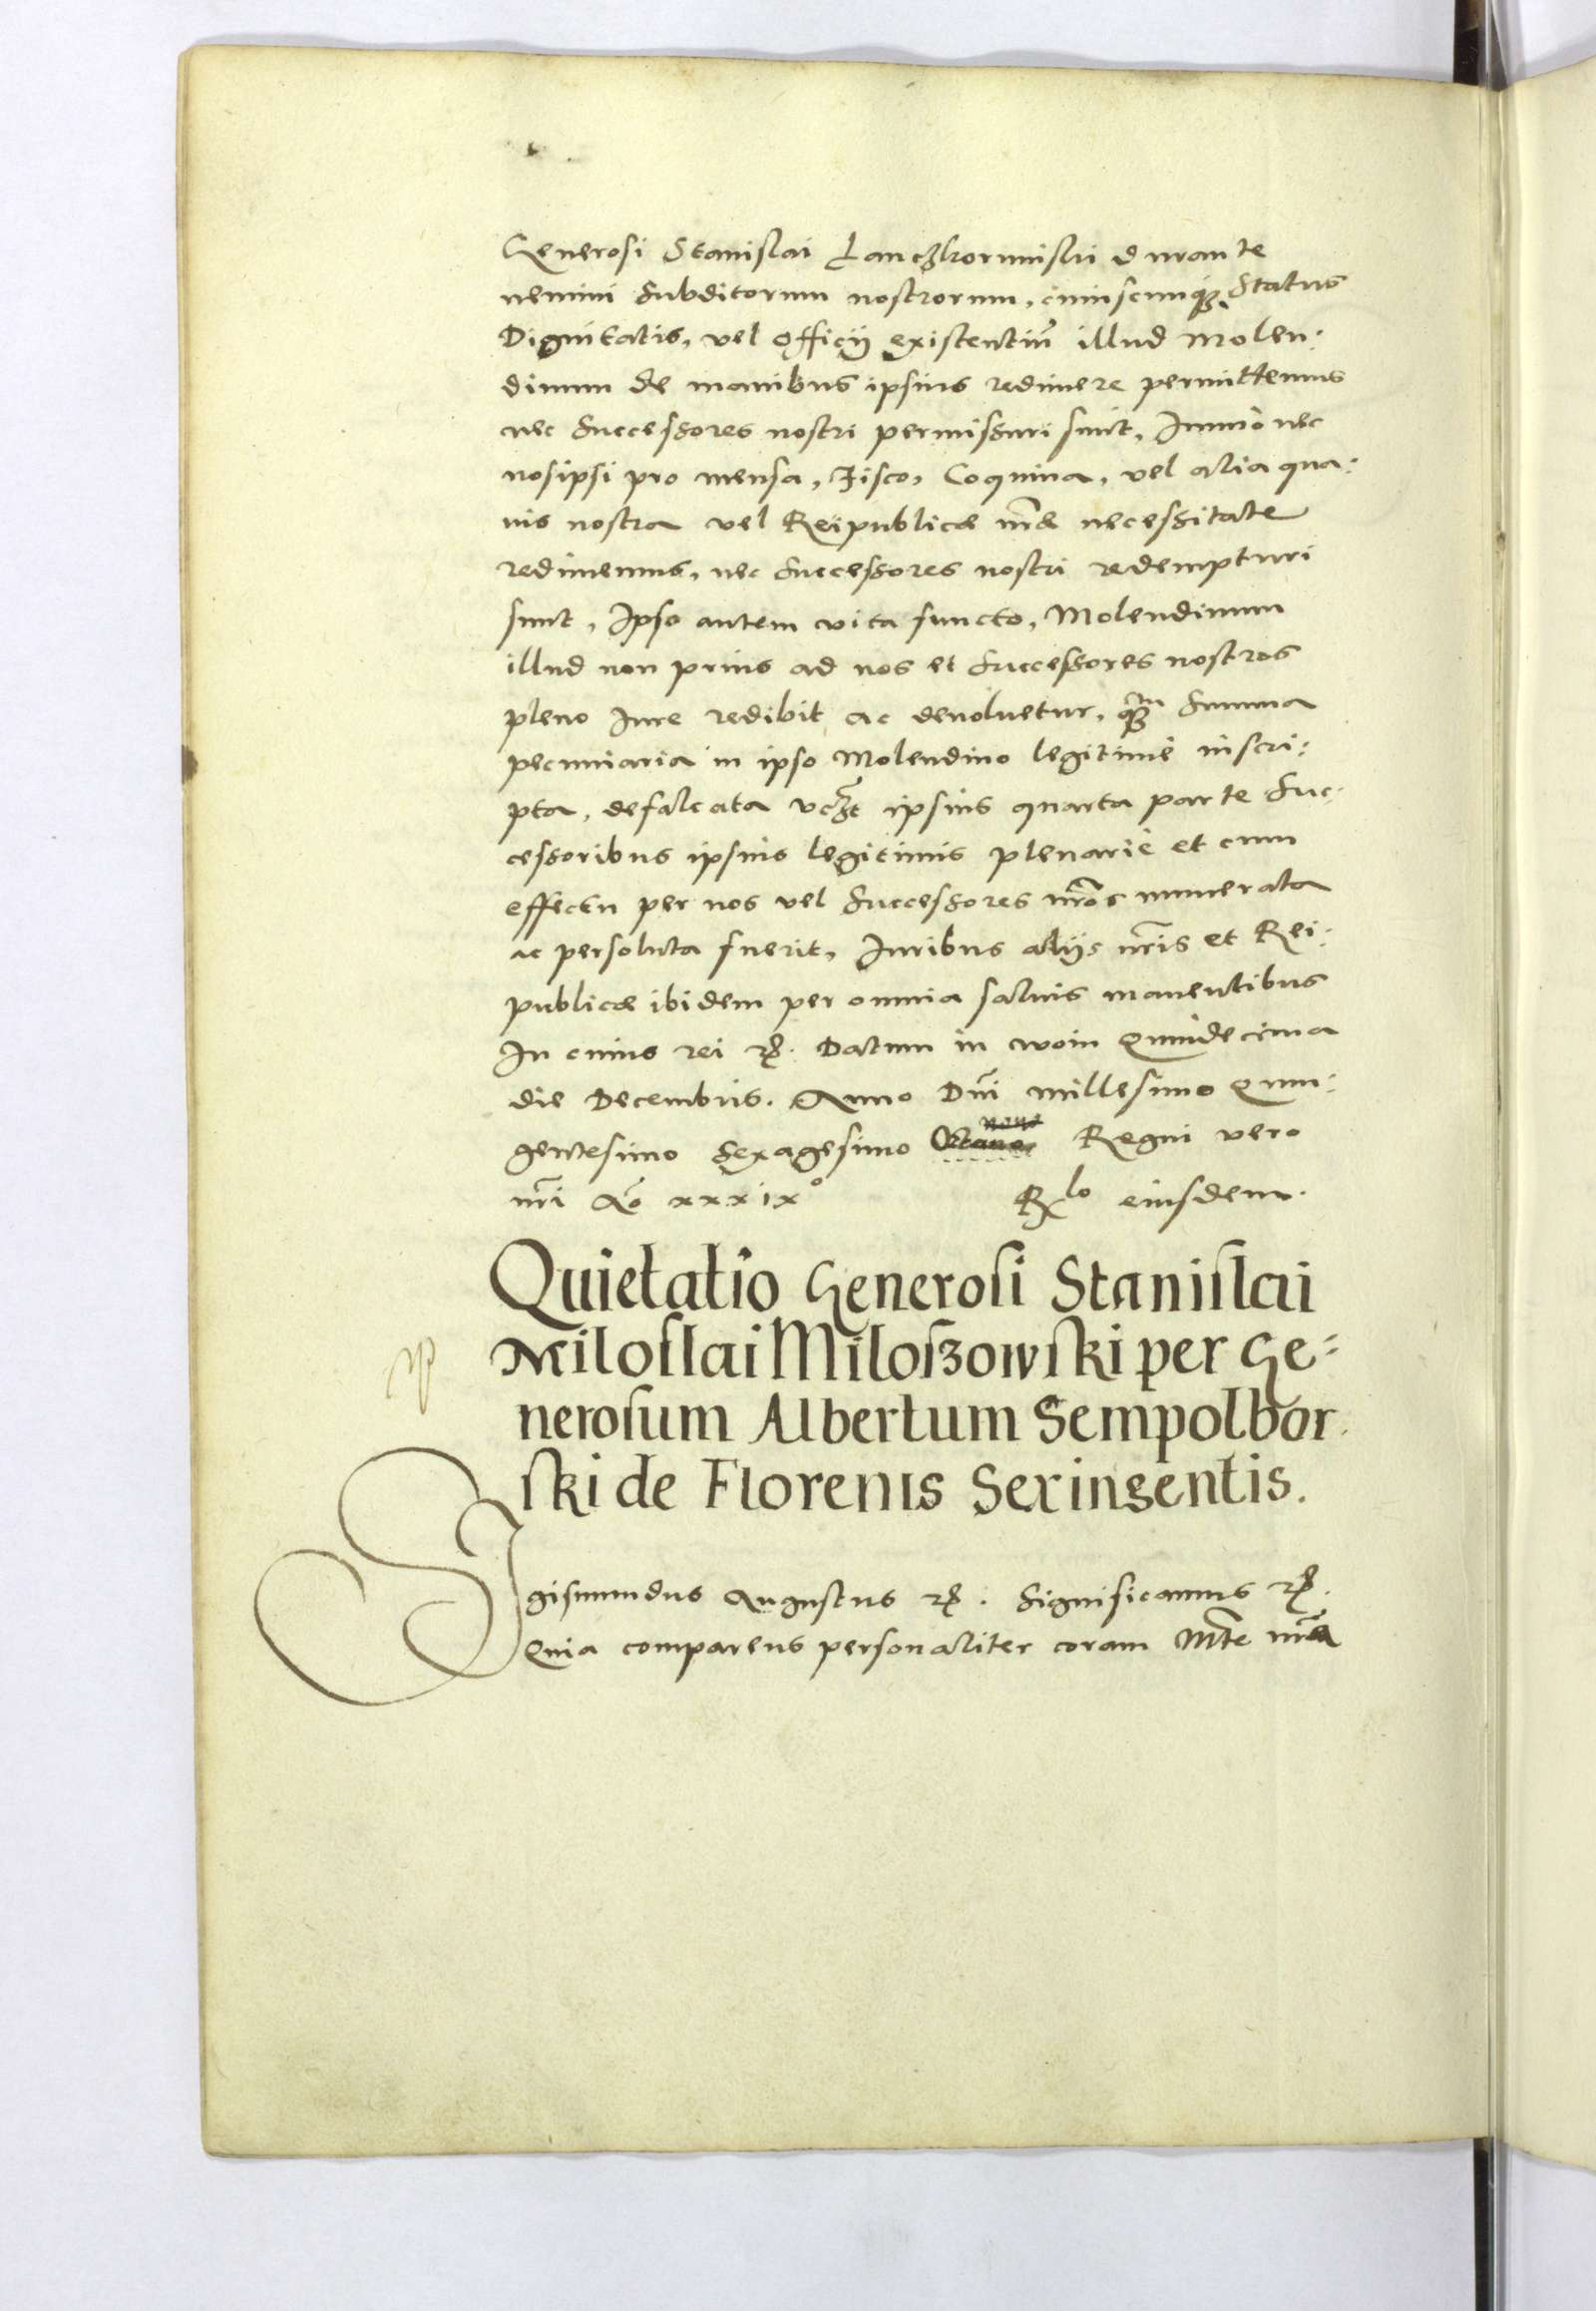 Generosi Stanislai Lanczkorunski durante
nemini Subditorum nostrorum, cuiuscunqz Status
Dignitatis, vel Officij existentiũ illud Molen:
dinum de manibus ipsius redimere permittemus
nec Successores nostri permissuri sunt, Immo nec
nosipsi pro mensa, Fisco, Coquina, vel alia qua:
uis nostra vel Reipublicæ nr̃æ necessitate
redimemus, nec Successores nostri redempturi
sunt, Ipso autem vita functo, Molendinum
illud non prius ad nos et Successores nostros
pleno Iure redibit ac deuoluetur, qᷓm Summa
pecuniaria in ipso Molendino legitime inscri:
pta, defalcata vczt ipsius quarta parte Suc:
cessoribus ipsius legitimis plenarie et cum
effectu per nos vel Successores nr̃os numerata
ac persoluta fuerit, Iuribus alijs nr̃is et Rei:
publicæ ibidem per omnia saluis manentibus
In cuius rei ꝛc. Datum in woin Quindecima
die Decembris. Anno Dñi millesimo Quin:
gentesimo Sexagesimo Octauo nono Regni vero
nr̃i Aõ xxxix° Rlo eiusdem.
Quietatio Generosi Stanislai
Miloslai Miloszowski per Ge:
nerosum Albertum Sempolbor.
ski de Florenis Sexingentis.
Sigismundus Augustus ꝛc. Significamus ꝛc.
Quia comparens personaliter coram Mte nr̃a